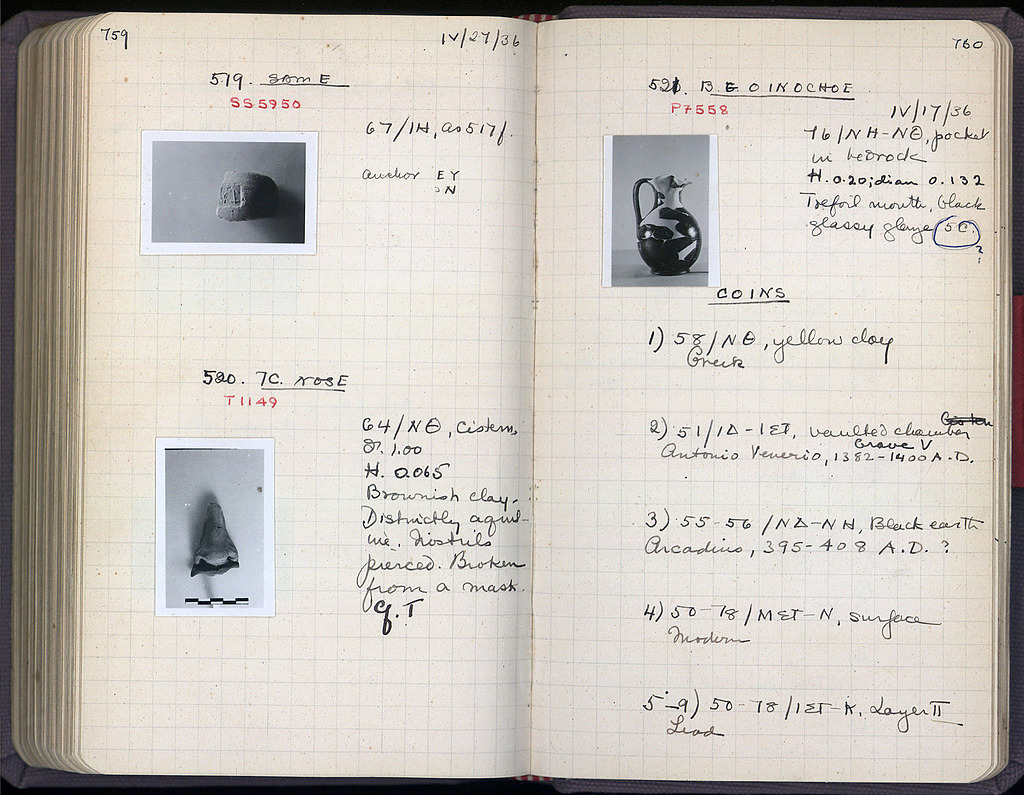 759
IV/27/36
519. SAME
SS5950
67/IH, as 517 f.
anchor EY
ON
520. TC. NOSE
T1149
64/NΘ, Cistern,
1.00
H. 0.065
Brownish clay.
Districtly aquil-
ine. Nostrils
pierced. Broken
from a mask.
cf. T
760
521. B.G OINOCHOE
P7558
IV/17/36
76/NH-NΘ, pocket
in bedrock
H. 0.20; diam 0.132
Trefoil mouth, black
glassy glaze 5C.
?
COINS
1) 58/NΘ, yellow clay
Greek
2) 51/IΔ-IΣT, vaulted chamber
Grave V
Antonio Venerio, 1382-1400 A.D.
3) 55-56/NΔ-NH, Black earth
Arcadius, 395-408 A.D. ?
4) 50-78/MΣT-N, surface
Modern
5-9) 50-78/IΣT-K, Layer II
Lead